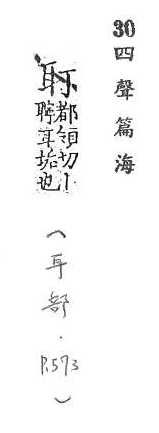 30四聲篇海
耵
都領切丨
聹耳垢也
（耳部·P.573）